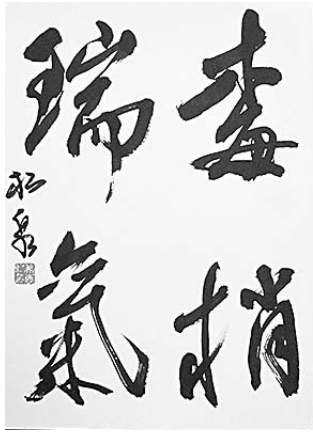 梅梢
瑞氣
松泉